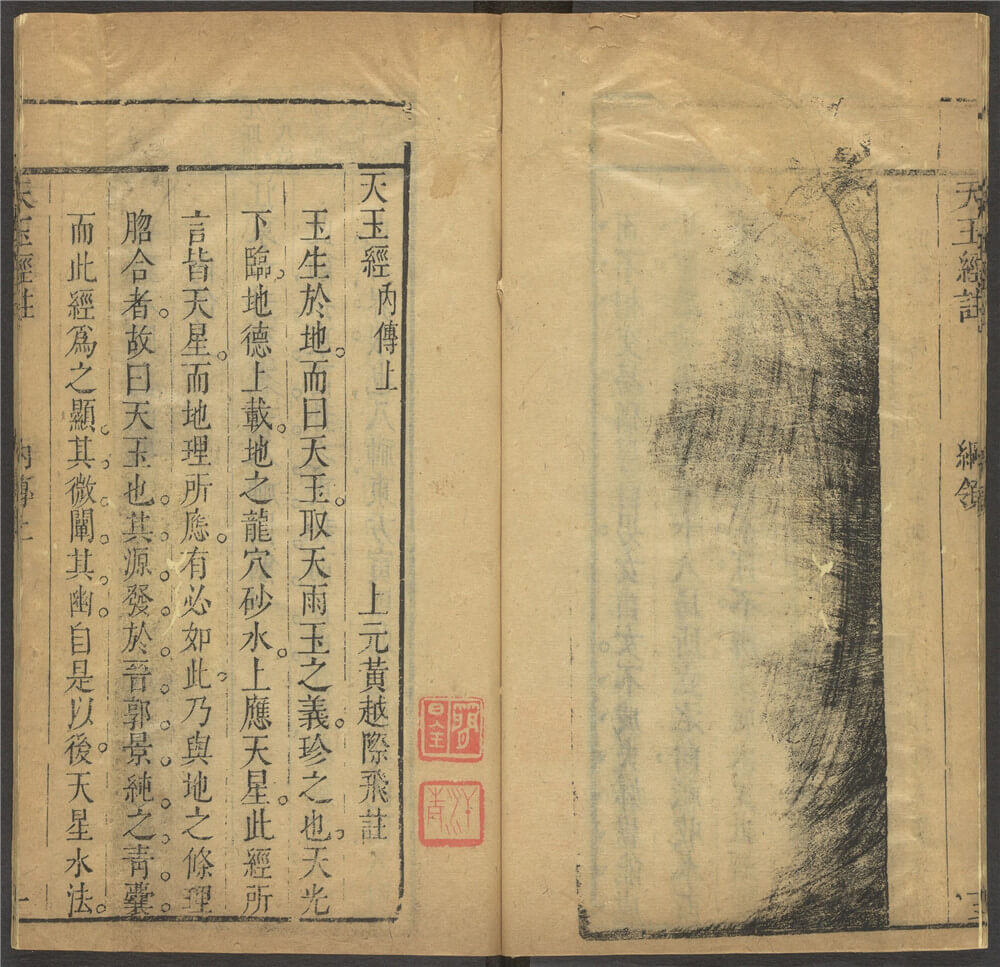 天玉經註
綱領
天玉經內傳上
上元黃越際飛註
玉生於地。而曰天玉。取天雨玉之義。珍之也。天光
下臨。地德上載。地之龍穴砂水。上應天星。此經所
言皆天星。而地理所應。有必如此。乃與地之條理
脗合者。故曰天玉也。其源發於晉郭景純之靑囊。
而此經爲之顯。其微闡。其幽。自是以後。天星水法。
天玉經註
內傳上
一